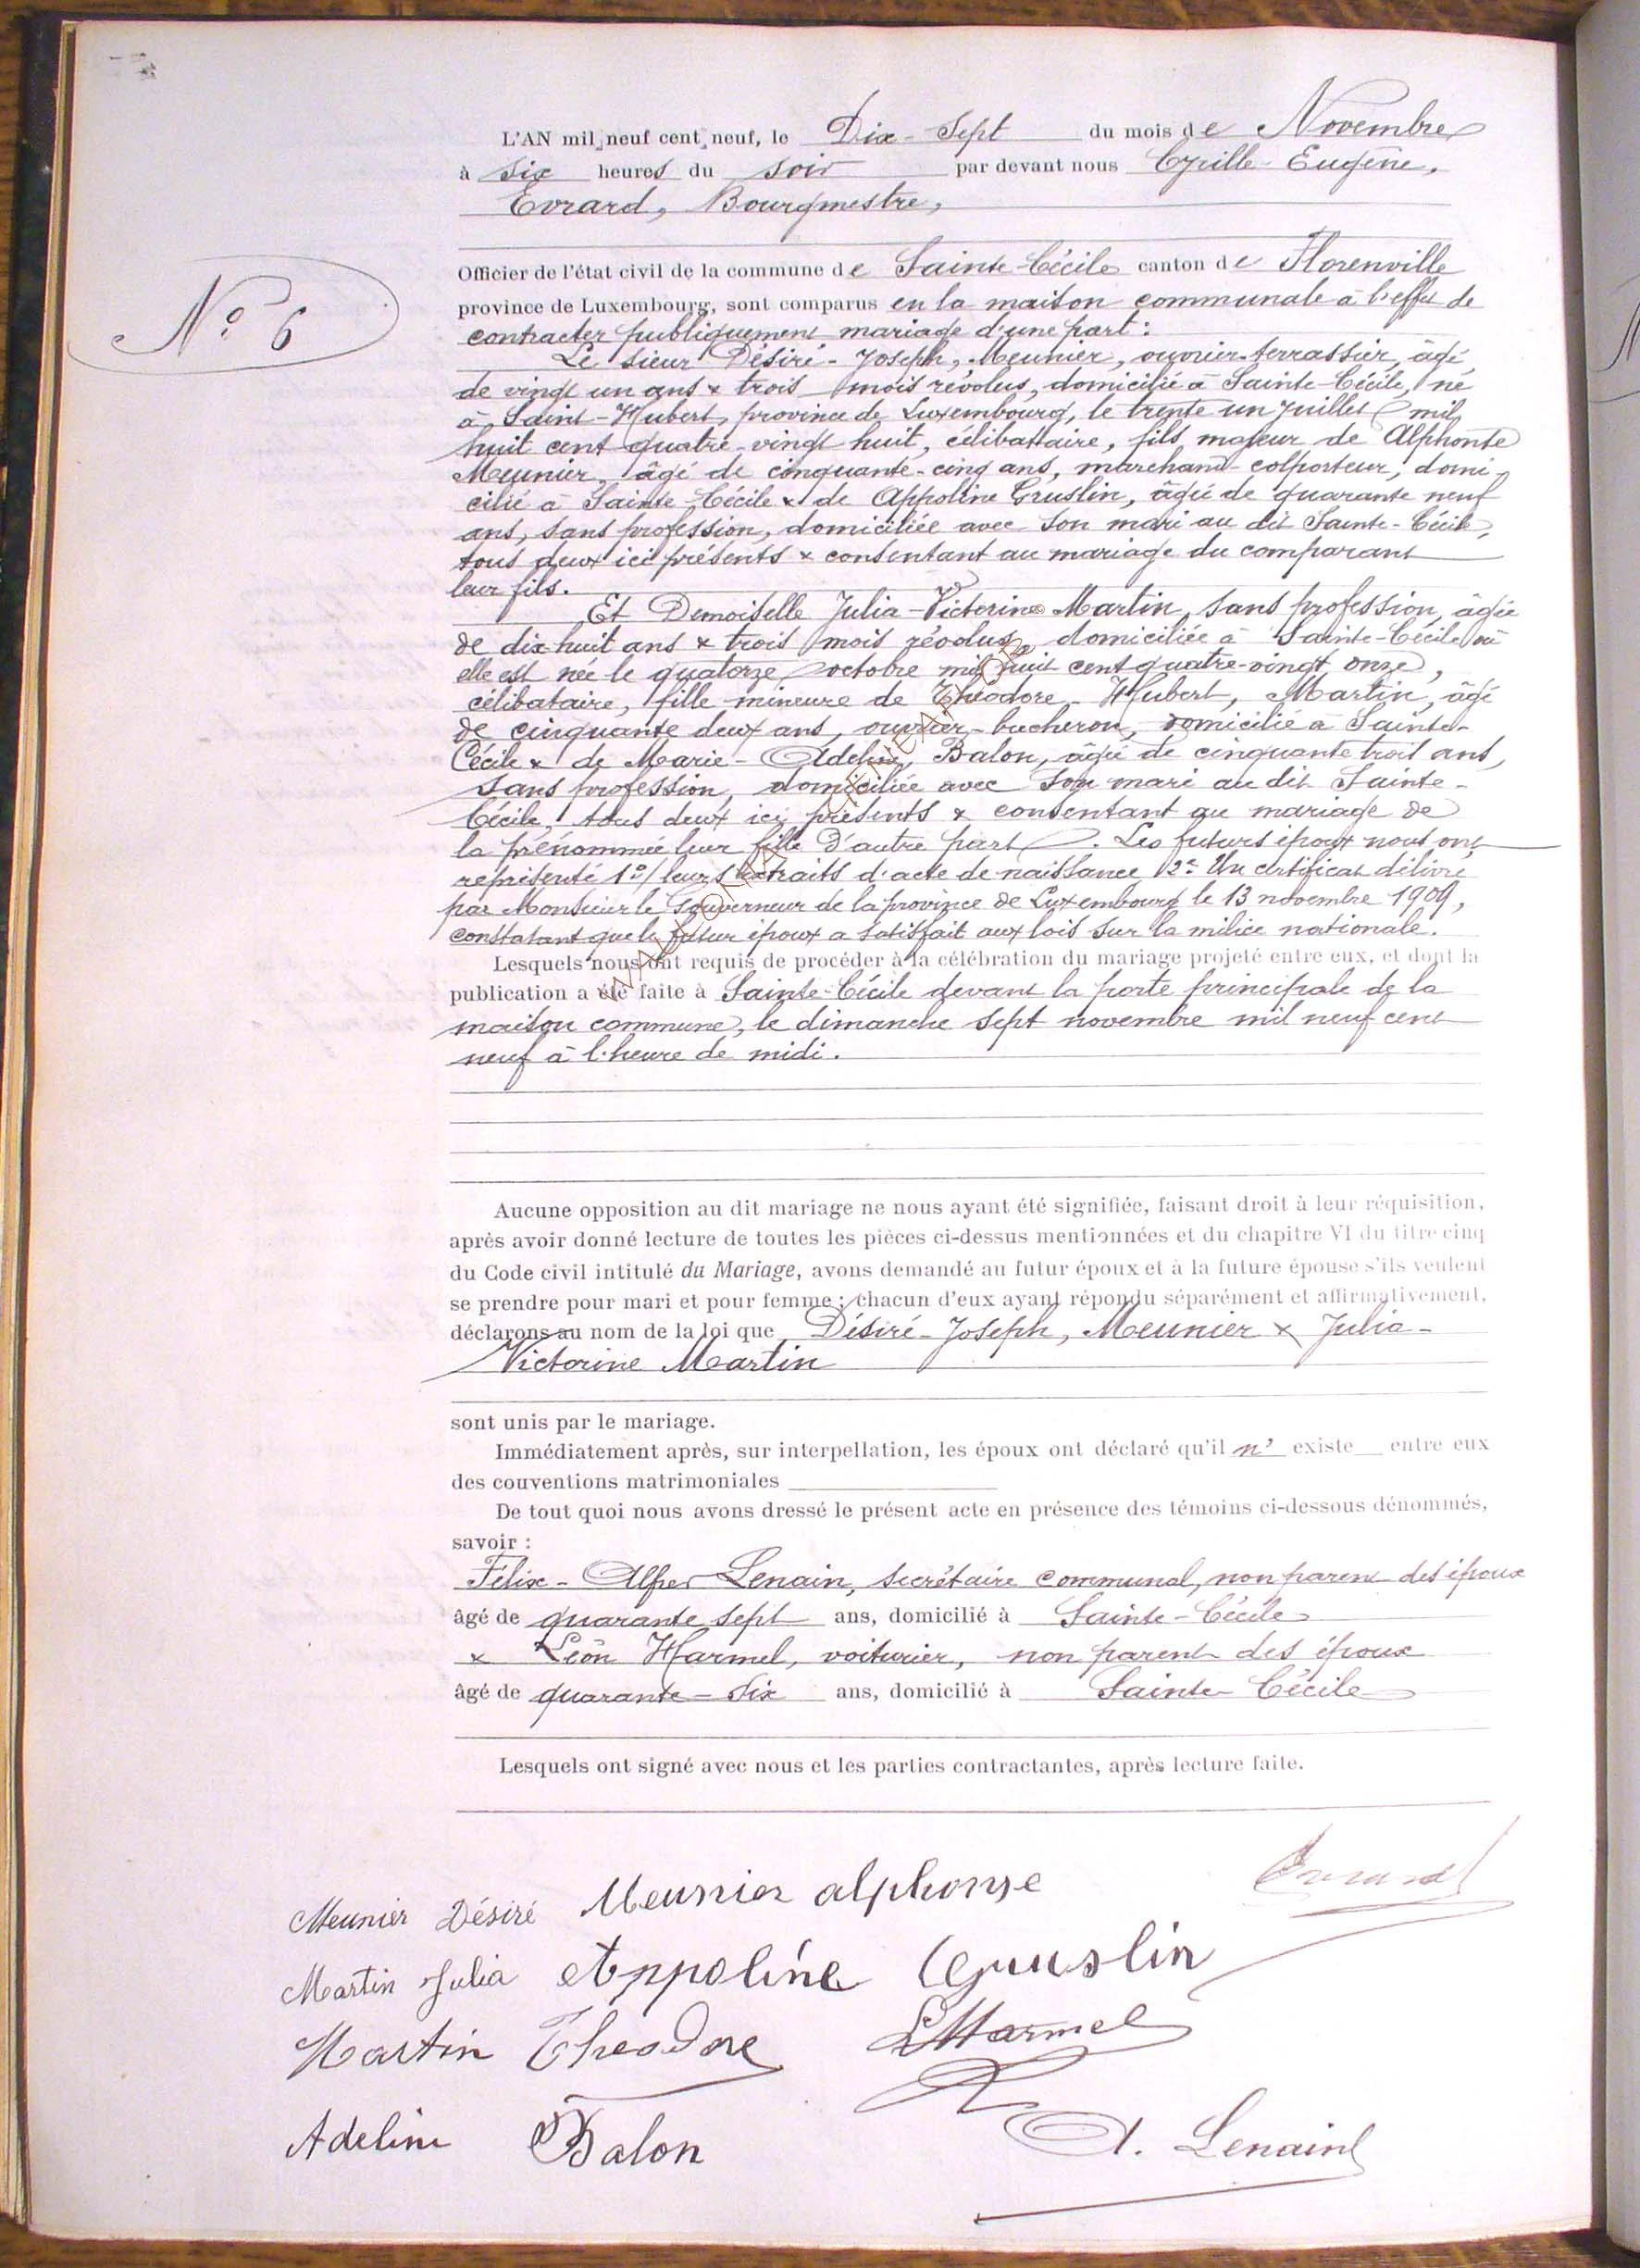 L'AN mil neuf cent neuf, le Dix-Sept du mois de Novembre
à six heures du soir par devant nous Cyrille-Eugène,
Evrard, Bourgmestre,
Officier de l'état civil de la commune de Sainte-Cécile canton de Florenville
N° 6
province de Luxembourg, sont comparus en la maison communale à l'effet de
contracter publiquement mariage d'une part :
Le sieur Désiré-Joseph, Meunier, ouvrier-terrassier, âgé
de vingt un ans & trois mois révolus, domicilié à Sainte-Cécile, né
à Saint-Hubert, province de Luxembourg, le trente un juillet mil
huit cent quatre-vingt huit, célibataire, fils majeur de Alphonse
Meunier, âgé de cinquante-cinq ans, marchand-colporteur, domi-
cilié à Sainte-Cécile & de Appoline Gruslin, âgée de quarante neuf
ans, sans profession, domiciliée avec son mari au dit Sainte-Cécile,
tous deux ici présents & consentant au mariage du comparant
leur fils.
Et Demoiselle Julia-Victorine Martin, sans profession, âgée
de dix-huit ans & trois mois révolus, domiciliée à Sainte-Cécile où
elle est née le quatorze octobre mil huit cent quatre-vingt onze,
célibataire, fille mineure de Théodore-Hubert, Martin, âgé
de cinquante deux ans, ouvrier-bucheron, domicilié à Sainte-
Cécile & de Marie-Adeline, Balon, âgée de cinquante trois ans,
sans profession, domiciliée avec son mari au dit Sainte-
Cécile, tous deux ici présents & consentant au mariage de
la prénommée leur fille d'autre part. Les futurs époux nous ont
représenté 1°/ leurs extraits d'acte de naissance 2° Un certificat délivré
par Monsieur le Gouverneur de la province de Luxembourg le 13 novembre 1909,
constatant que le futur époux a satisfait aux lois sur la milice nationale.
Lesquels nous ont requis de procéder à la célébration du mariage projeté entre eux, et dont la
publication a été faite à Sainte-Cécile devant la porte principale de la
maison commune, le dimanche sept novembre mil neuf cent
neuf à l'heure de midi.
Aucune opposition au dit mariage ne nous ayant été signifiée, faisant droit à leur réquisition,
après avoir donné lecture de toutes les pièces ci-dessus mentionnées et du chapitre VI du titre cinq
du Code civil intitulé du Mariage, avons demandé au futur époux et à la future épouse s'ils veulent
se prendre pour mari et pour femme ; chacun d'eux ayant répondu séparément et affirmativement,
déclarons au nom de la loi que Désiré-Joseph, Meunier & Julia-
Victorine Martin
sont unis par le mariage.
Immédiatement après, sur interpellation, les époux ont déclaré qu'il n' existe entre eux
des conventions matrimoniales
De tout quoi nous avons dressé le présent acte en présence des témoins ci-dessous dénommés,
savoir :
Félix-Alfred Lenain, secrétaire communal, non parent des époux
âgé de quarante sept ans, domicilié à Sainte-Cécile
& Léon Harmel, voiturier, non parent des époux
âgé de quarante-six ans, domicilié à Sainte-Cécile
Lesquels ont signé avec nous et les parties contractantes, après lecture faite.
Evrard
Meunier Désiré Meunier alphonse
Martin Julia Appoline Gruslin
Martin Theodore LHarmel
Adeline Balon A. Lenain